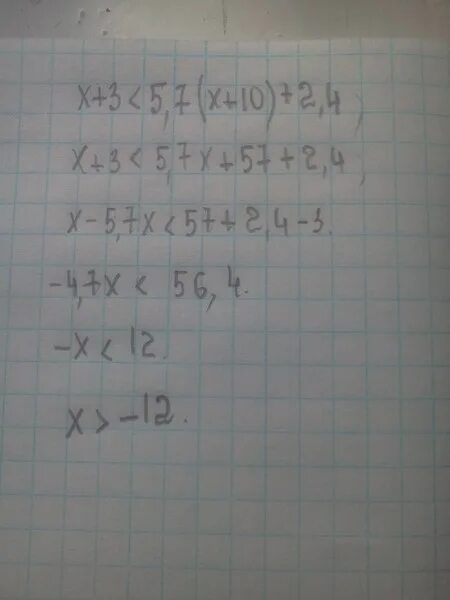 x+3<5,7(x+10)+2,4,
x+3<5,7x+57+2,4,
x-5,7x<57+2,4-3.
-4,7x< 56,4.
-x< 12.
x>-12.